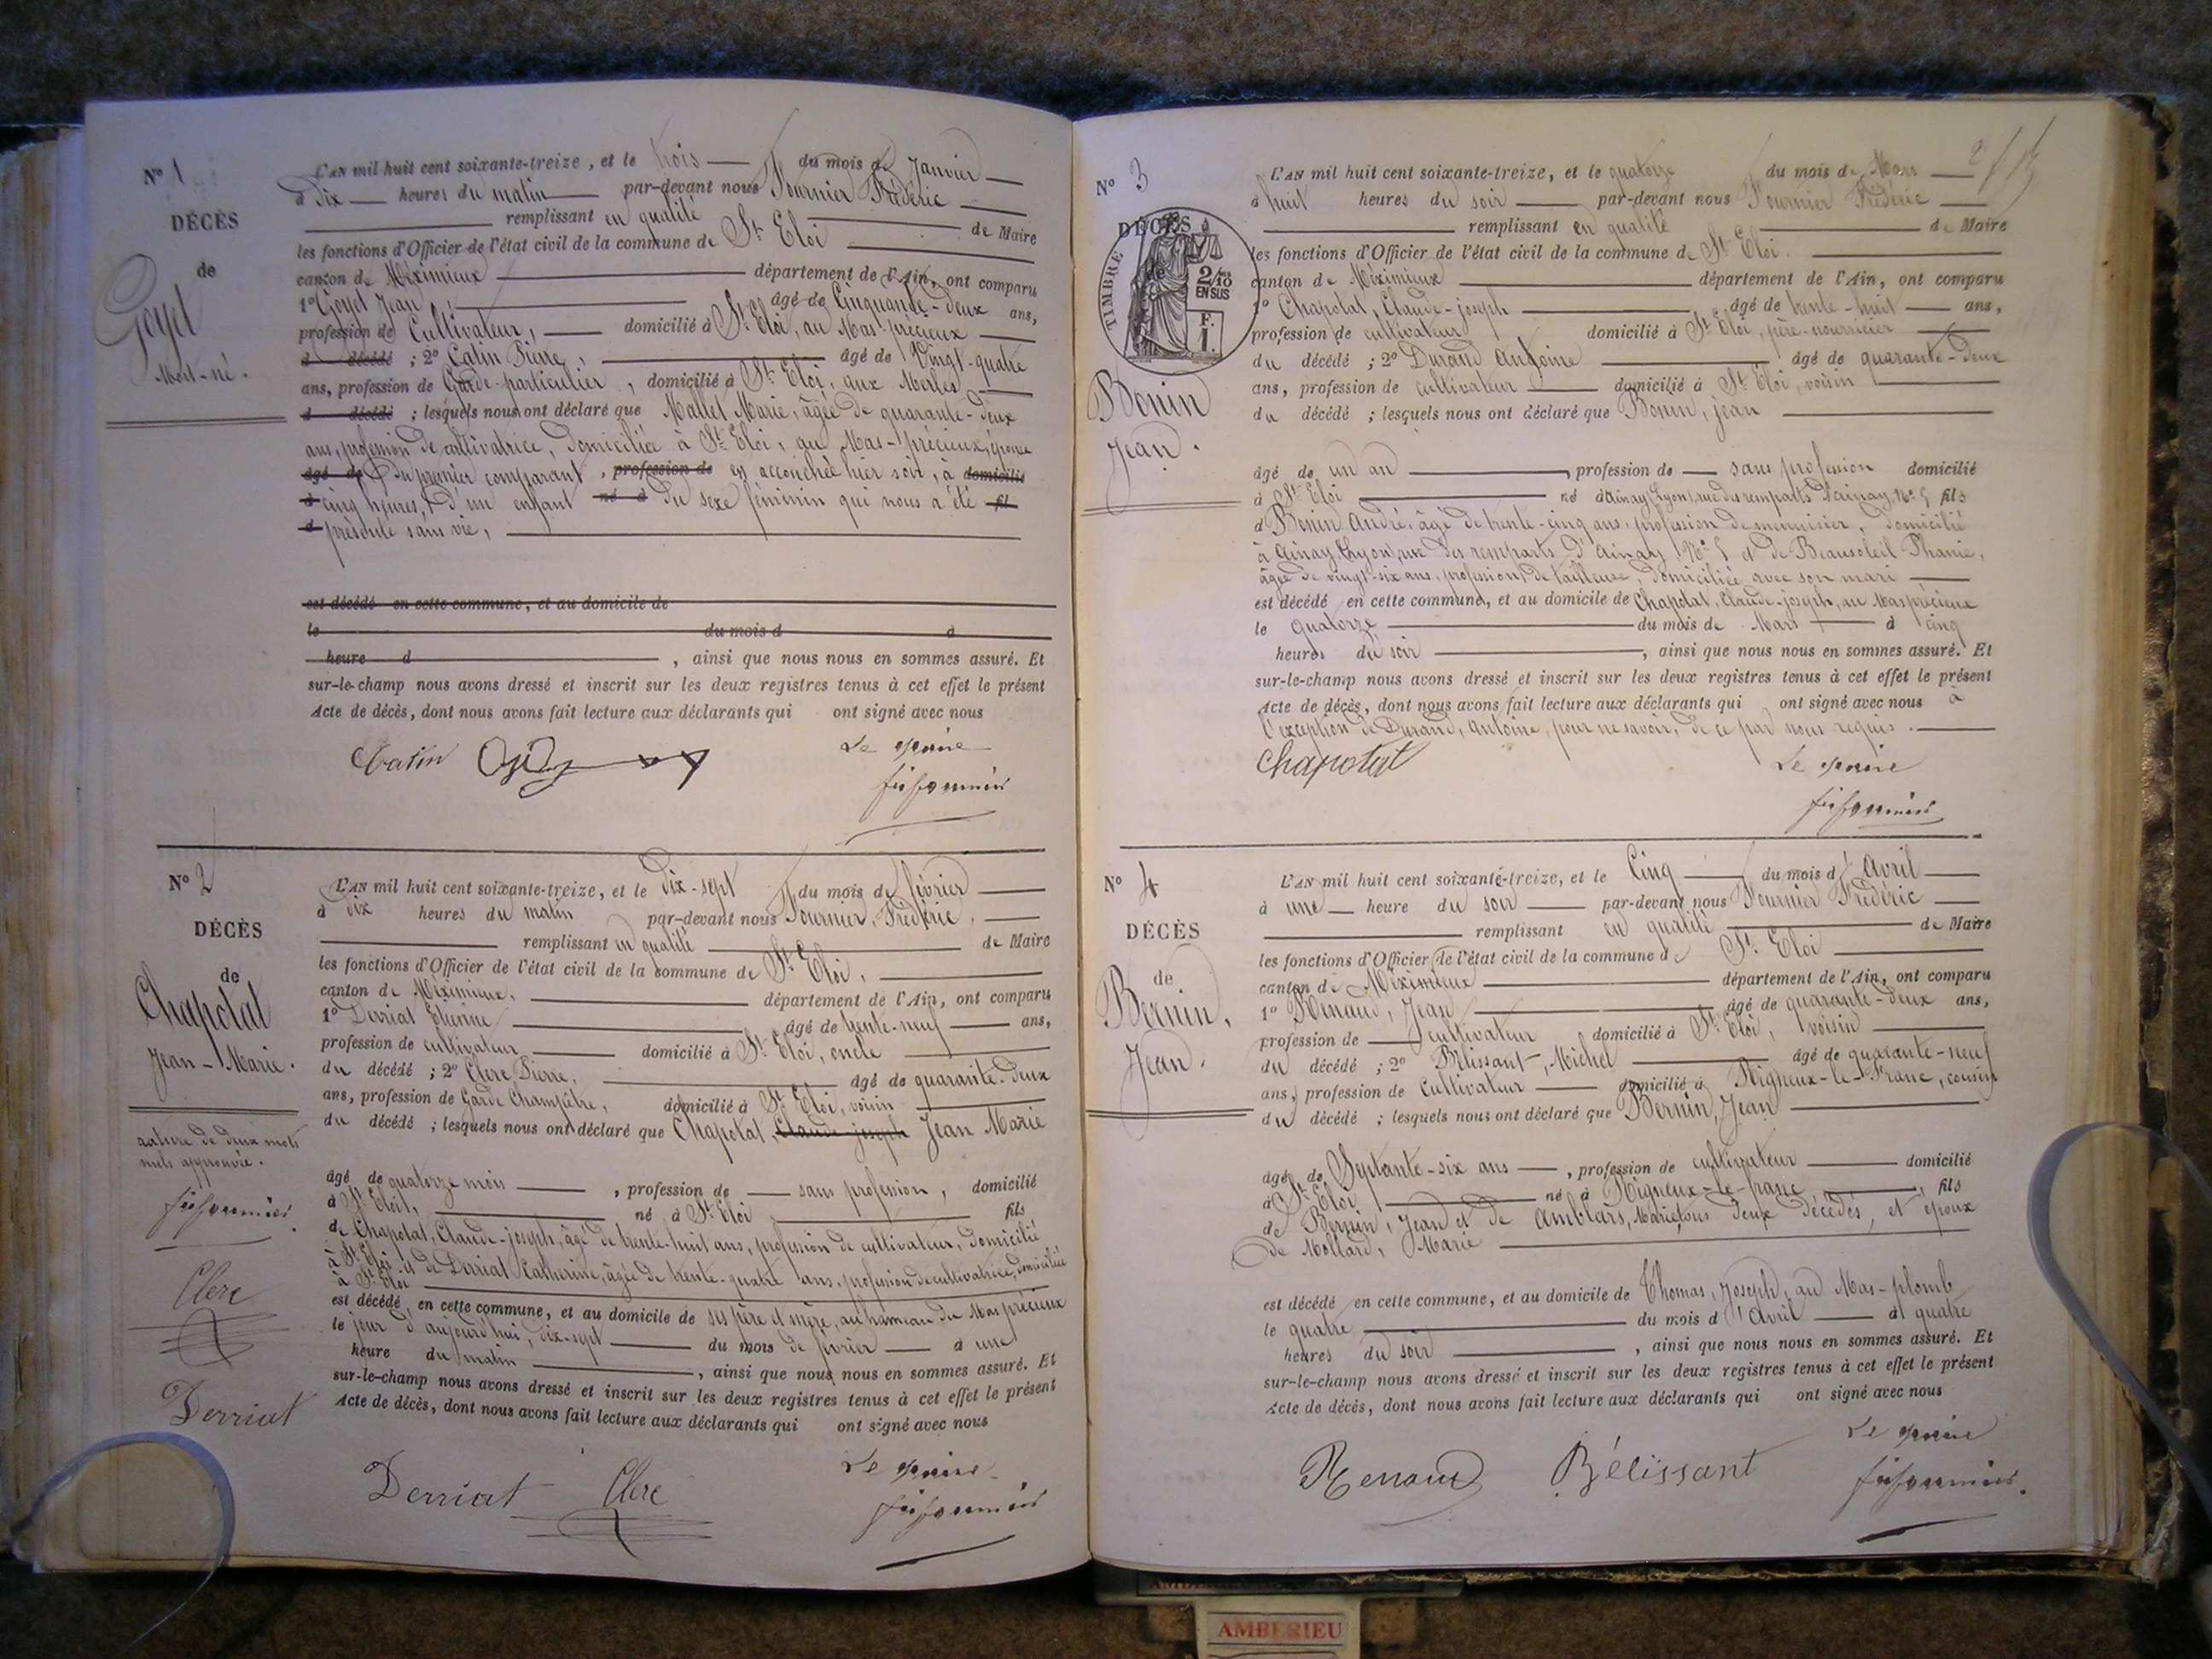 Nº 1
DÉCÈS
de
Goyet
Mort-né.
L'AN mil huit cent soixante-treize, et le trois du mois de Janvier
à dix heures du matin par-devant nous Fournier Frédéric
remplissant en qualité de Maire
les fonctions d'Officier de l'état civil de la commune de St Eloi
canton de Méximieux département de l'Ain, ont comparu
1º Goyet Jean âgé de Cinquante-deux ans,
profession de Cultivateur, domicilié à St Eloi, au Mas-précieux
d décédé ; 2º Catin Pierre, âgé de Vingt-quatre
ans, profession de Garde-particulier, domicilié à St Eloi, aux Merles
d décédé ; lesquels nous ont déclaré que Mallet Marie, âgée de quarante-deux
ans, profession de cultivatrice, domiciliée à St Eloi, au Mas-précieux, épouse
âgé de du premier comparant, profession de est accouchée hier soir, à domicilié
à cinq heures, d'un enfant né à du sexe féminin qui nous a été fil
d présenté sans vie,
est décédé en cette commune, et au domicile de
le du mois d à
heure d , ainsi que nous nous en sommes assuré. Et
sur-le-champ nous avons dressé et inscrit sur les deux registres tenus à cet effet le présent
Acte de décès, dont nous avons fait lecture aux déclarants qui ont signé avec nous
Catin Le maire
Nº 2
DÉCÈS
de
Chapolat
Jean-Marie.
rature de deux mots
nuls approuvée.
Clerc
Derriat
L'AN mil huit cent soixante-treize, et le dix-sept du mois de février
à dix heures du matin par-devant nous Fournier, Frédéric,
remplissant en qualité de Maire
les fonctions d'Officier de l'état civil de la commune de St Eloi,
canton de Méximieux, département de l'Ain, ont comparu
1º Derriat Etienne âgé de trente-neuf ans,
profession de cultivateur domicilié à St Eloi, oncle
du décédé ; 2º Clerc Pierre, âgé de quarante-deux
ans, profession de Garde Champêtre, domicilié à St Eloi, voisin
du décédé ; lesquels nous ont déclaré que Chapolat, Claude-joseph Jean Marie
âgé de quatorze mois , profession de sans profession, domicilié
à St Eloi, né à St Eloi fils
de Chapolat, Claude-joseph, âgé de trente-huit ans, profession de cultivateur, domicilié
à St Eloi et de Derriat Catherine, âgée de trente-quatre ans, profession de cultivatrice, domiciliée
à St Eloi
est décédé en cette commune, et au domicile de ses père et mère, au hameau du Mas précieux
le jour d'aujourd'hui, dix-sept du mois de février à une
heure du matin , ainsi que nous nous en sommes assuré. Et
sur-le-champ nous avons dressé et inscrit sur les deux registres tenus à cet effet le présent
Acte de décès, dont nous avons fait lecture aux déclarants qui ont signé avec nous
Derriat Clerc Le maire
Nº 3
DÉCÈS
TIMBRE
2/10
EN SUS
F.
1.
Bonin
Jean.
L'AN mil huit cent soixante-treize, et le quatorze du mois de Mars
à huit heures du soir par-devant nous Fournier Frédéric
remplissant en qualité de Maire
les fonctions d'Officier de l'état civil de la commune de St Eloi.
canton de Méximieux département de l'Ain, ont comparu
1º Chapolat, Claude-joseph âgé de trente-huit ans,
profession de cultivateur domicilié à St Eloi, père-nourricier
du décédé ; 2º Durand Antoine âgé de quarante-deux
ans, profession de cultivateur domicilié à St Eloi, voisin
du décédé ; lesquels nous ont déclaré que Bonin, jean
âgé de un an , profession de sans profession domicilié
à St Eloi né à Ainay (Lyon) rue des remparts d'ainay, Nº 5 fils
d Bonin André, âgé de trente-cinq ans, profession de menuisier, domicilié
à Ainay (Lyon), rue des remparts d'Ainay, Nº 5 et de Beausoleil Phanie,
âgée de vingt-six ans, profession de tailleuse, domiciliée avec son mari
est décédé en cette commune, et au domicile de Chapolat, Claude-joseph, au Mas précieux
le quatorze du mois de Mars à cinq
heures du soir , ainsi que nous nous en sommes assuré. Et
sur-le-champ nous avons dressé et inscrit sur les deux registres tenus à cet effet le présent
Acte de décès, dont nous avons fait lecture aux déclarants qui ont signé avec nous à
l'exception de Durand, Antoine, pour ne savoir, de ce par nous requis.
Chapolat Le maire
Nº 4
DÉCÈS
de
Bernin,
Jean.
L'AN mil huit cent soixante-treize, et le Cinq du mois d'Avril
à une heure du soir par-devant nous Fournier Frédéric
remplissant en qualité de Maire
les fonctions d'Officier de l'état civil de la commune de St Eloi
canton de Méximieux département de l'Ain, ont comparu
1º Renaud, Jean âgé de quarante-deux ans,
profession de cultivateur domicilié à St Eloi, voisin
du décédé ; 2º Bélissant, Michel âgé de quarante-neuf
ans, profession de Cultivateur domicilié à Rigneux-le-Franc, cousin
du décédé ; lesquels nous ont déclaré que Bernin, Jean
âgé de Septante-six ans , profession de cultivateur domicilié
à St Eloi né à Rigneux-le-franc, fils
de Bernin, Jean et de Amblars, Marie, tous deux décédés, et époux
de Mollard, Marie
est décédé en cette commune, et au domicile de Thomas, Joseph, au Mas-plomb
le quatre du mois d'Avril à quatre
heures du soir , ainsi que nous nous en sommes assuré. Et
sur-le-champ nous avons dressé et inscrit sur les deux registres tenus à cet effet le présent
Acte de décès, dont nous avons fait lecture aux déclarants qui ont signé avec nous
Renaud Bélissant Le maire
AMBERIEU